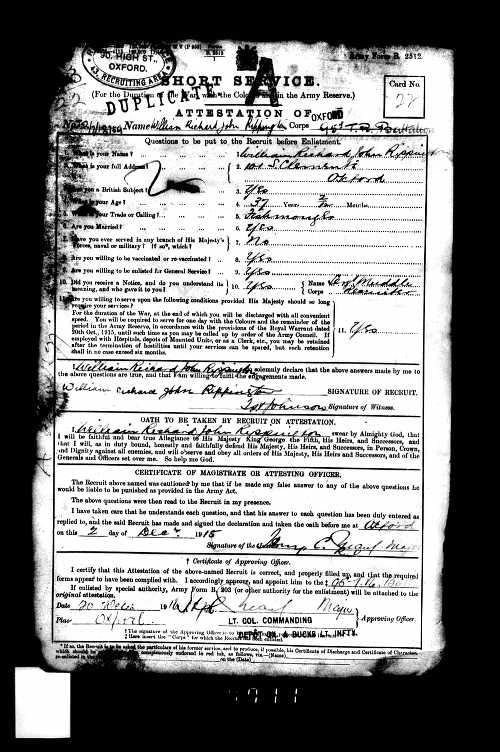 90, HIGH ST.,
OXFORD.
43, RECRUITING AREA
Army Form B. 2512.
SHORT SERVICE.
(For the Duration of the War, with the Colours and in the Army Reserve.)
DUPLICATE
A
Card No.
ATTESTATION OF
Name William Richard John Rippington Corps OXFORD
Questions to be put to the Recruit before Enlistment.
1. What is your Name? 1. William Richard John Rippington
2. What is your full Address? 2. St Clements
Oxford
3. Are you a British Subject? 3. Yes
4. What is your Age? 4. 37 Years Months.
5. What is your Trade or Calling? 5. Fishmonger
6. Are you Married? 6. Yes
7. Have you ever served in any branch of His Majesty's Forces, naval or military? If so*, which? 7. No
8. Are you willing to be vaccinated or re-vaccinated? 8. Yes
9. Are you willing to be enlisted for General Service? 9. Yes
10. Did you receive a Notice, and do you understand its meaning, and who gave it to you? 10. Yes Name
Corps
11. Are you willing to serve upon the following conditions provided His Majesty should so long require your services?
For the duration of the War, at the end of which you will be discharged with all convenient
speed. You will be required to serve for one day with the Colours and the remainder of the
period in the Army Reserve, in accordance with the provisions of the Royal Warrant dated
20th Oct., 1915, until such time as you may be called up by order of the Army Council. If
employed with Hospitals, depots of Mounted Units, or as a Clerk, etc., you may be retained
after the termination of hostilities until your services can be spared, but such retention
shall in no case exceed six months. 11. Yes
I, William Richard John Rippington solemnly declare that the above answers made by me to
the above questions are true, and that I am willing to fulfil the engagements made.
William Richard John Rippington SIGNATURE OF RECRUIT.
Johnson Signature of Witness.
OATH TO BE TAKEN BY RECRUIT ON ATTESTATION.
I, William Richard John Rippington swear by Almighty God, that
I will be faithful and bear true Allegiance to His Majesty King George the Fifth, His Heirs, and Successors, and
that I will, as in duty bound, honestly and faithfully defend His Majesty, His Heirs, and Successors, in Person, Crown,
and Dignity against all enemies, and will observe and obey all orders of His Majesty, His Heirs and Successors, and of the
Generals and Officers set over me. So help me God.
CERTIFICATE OF MAGISTRATE OR ATTESTING OFFICER.
The Recruit above named was cautioned by me that if he made any false answer to any of the above questions he
would be liable to be punished as provided in the Army Act.
The above questions were then read to the Recruit in my presence.
I have taken care that he understands each question, and that his answer to each question has been duly entered as
replied to, and the said Recruit has made and signed the declaration and taken the oath before me at Oxford
on this 2 day of Dec 1915
Signature of the Justice Major
† Certificate of Approving Officer.
I certify that this Attestation of the above-named Recruit is correct, and properly filled up, and that the required
forms appear to have been complied with. I accordingly approve, and appoint him to the‡
If enlisted by special authority, Army Form B. 203 (or other authority for the enlistment) will be attached to the
original attestation.
Date 1916 Major
Place Oxford Approving Officer.
LT. COL. COMMANDING
DEPOT OX. & BUCKS LT. INFTY.
† The signature of the Approving Officer is to
‡ Here insert the "Corps" for which the Recruit
* If so, the Recruit is to be asked the particulars of his former service, and to produce, if possible, his Certificate of Discharge and Certificate of Character,